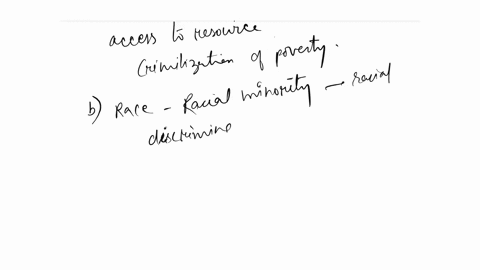 access to resource
Crimilization of poverty.
b) Race - Racial minority → racial
discrimine